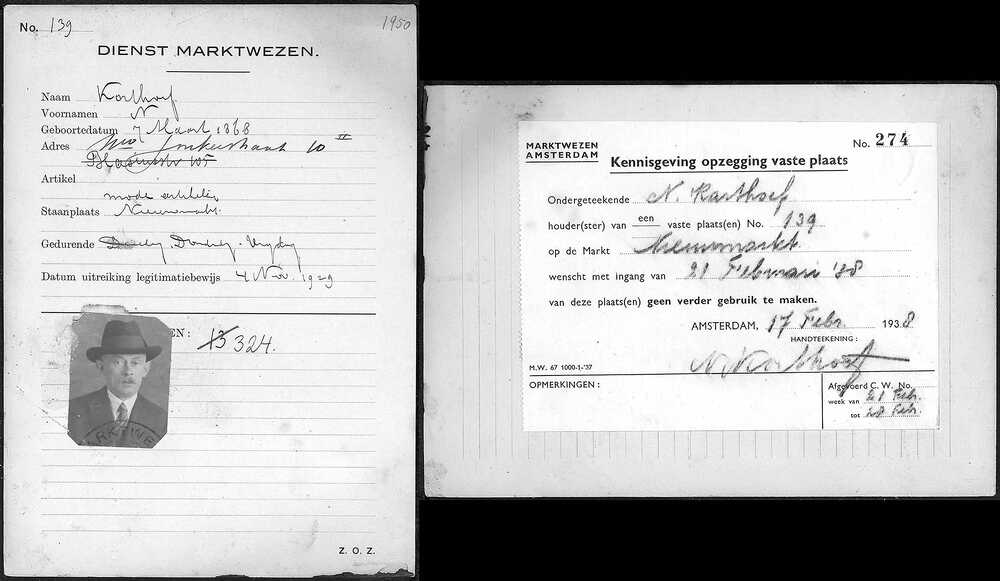 No. 139
1950
DIENST MARKTWEZEN.
Naam Korthoef
Voornamen N
Geboortedatum 7 Maart 1868
Adres Jonkerstraat 10 II
105
Artikel
mode artikelen
Staanplaats Nieuwmarkt
Gedurende Donderdag. Vrijdag
Datum uitreiking legitimatiebewijs 4 Nov 1929
EN: 13 324.
ARKTWE
Z. O. Z.
MARKTWEZEN
AMSTERDAM
No. 274
Kennisgeving opzegging vaste plaats
Ondergeteekende N. Korthoef
houder(ster) van een vaste plaats(en) No. 139
op de Markt Nieuwmarkt
wenscht met ingang van 21 Februari '38
van deze plaats(en) geen verder gebruik te maken.
AMSTERDAM, 17 Febr. 1938
HANDTEEKENING:
N. Korthoef
M.W. 67 1000-1-'37
OPMERKINGEN:
Afgevoerd C. W. No.
week van 21 Febr.
tot 28 Febr.